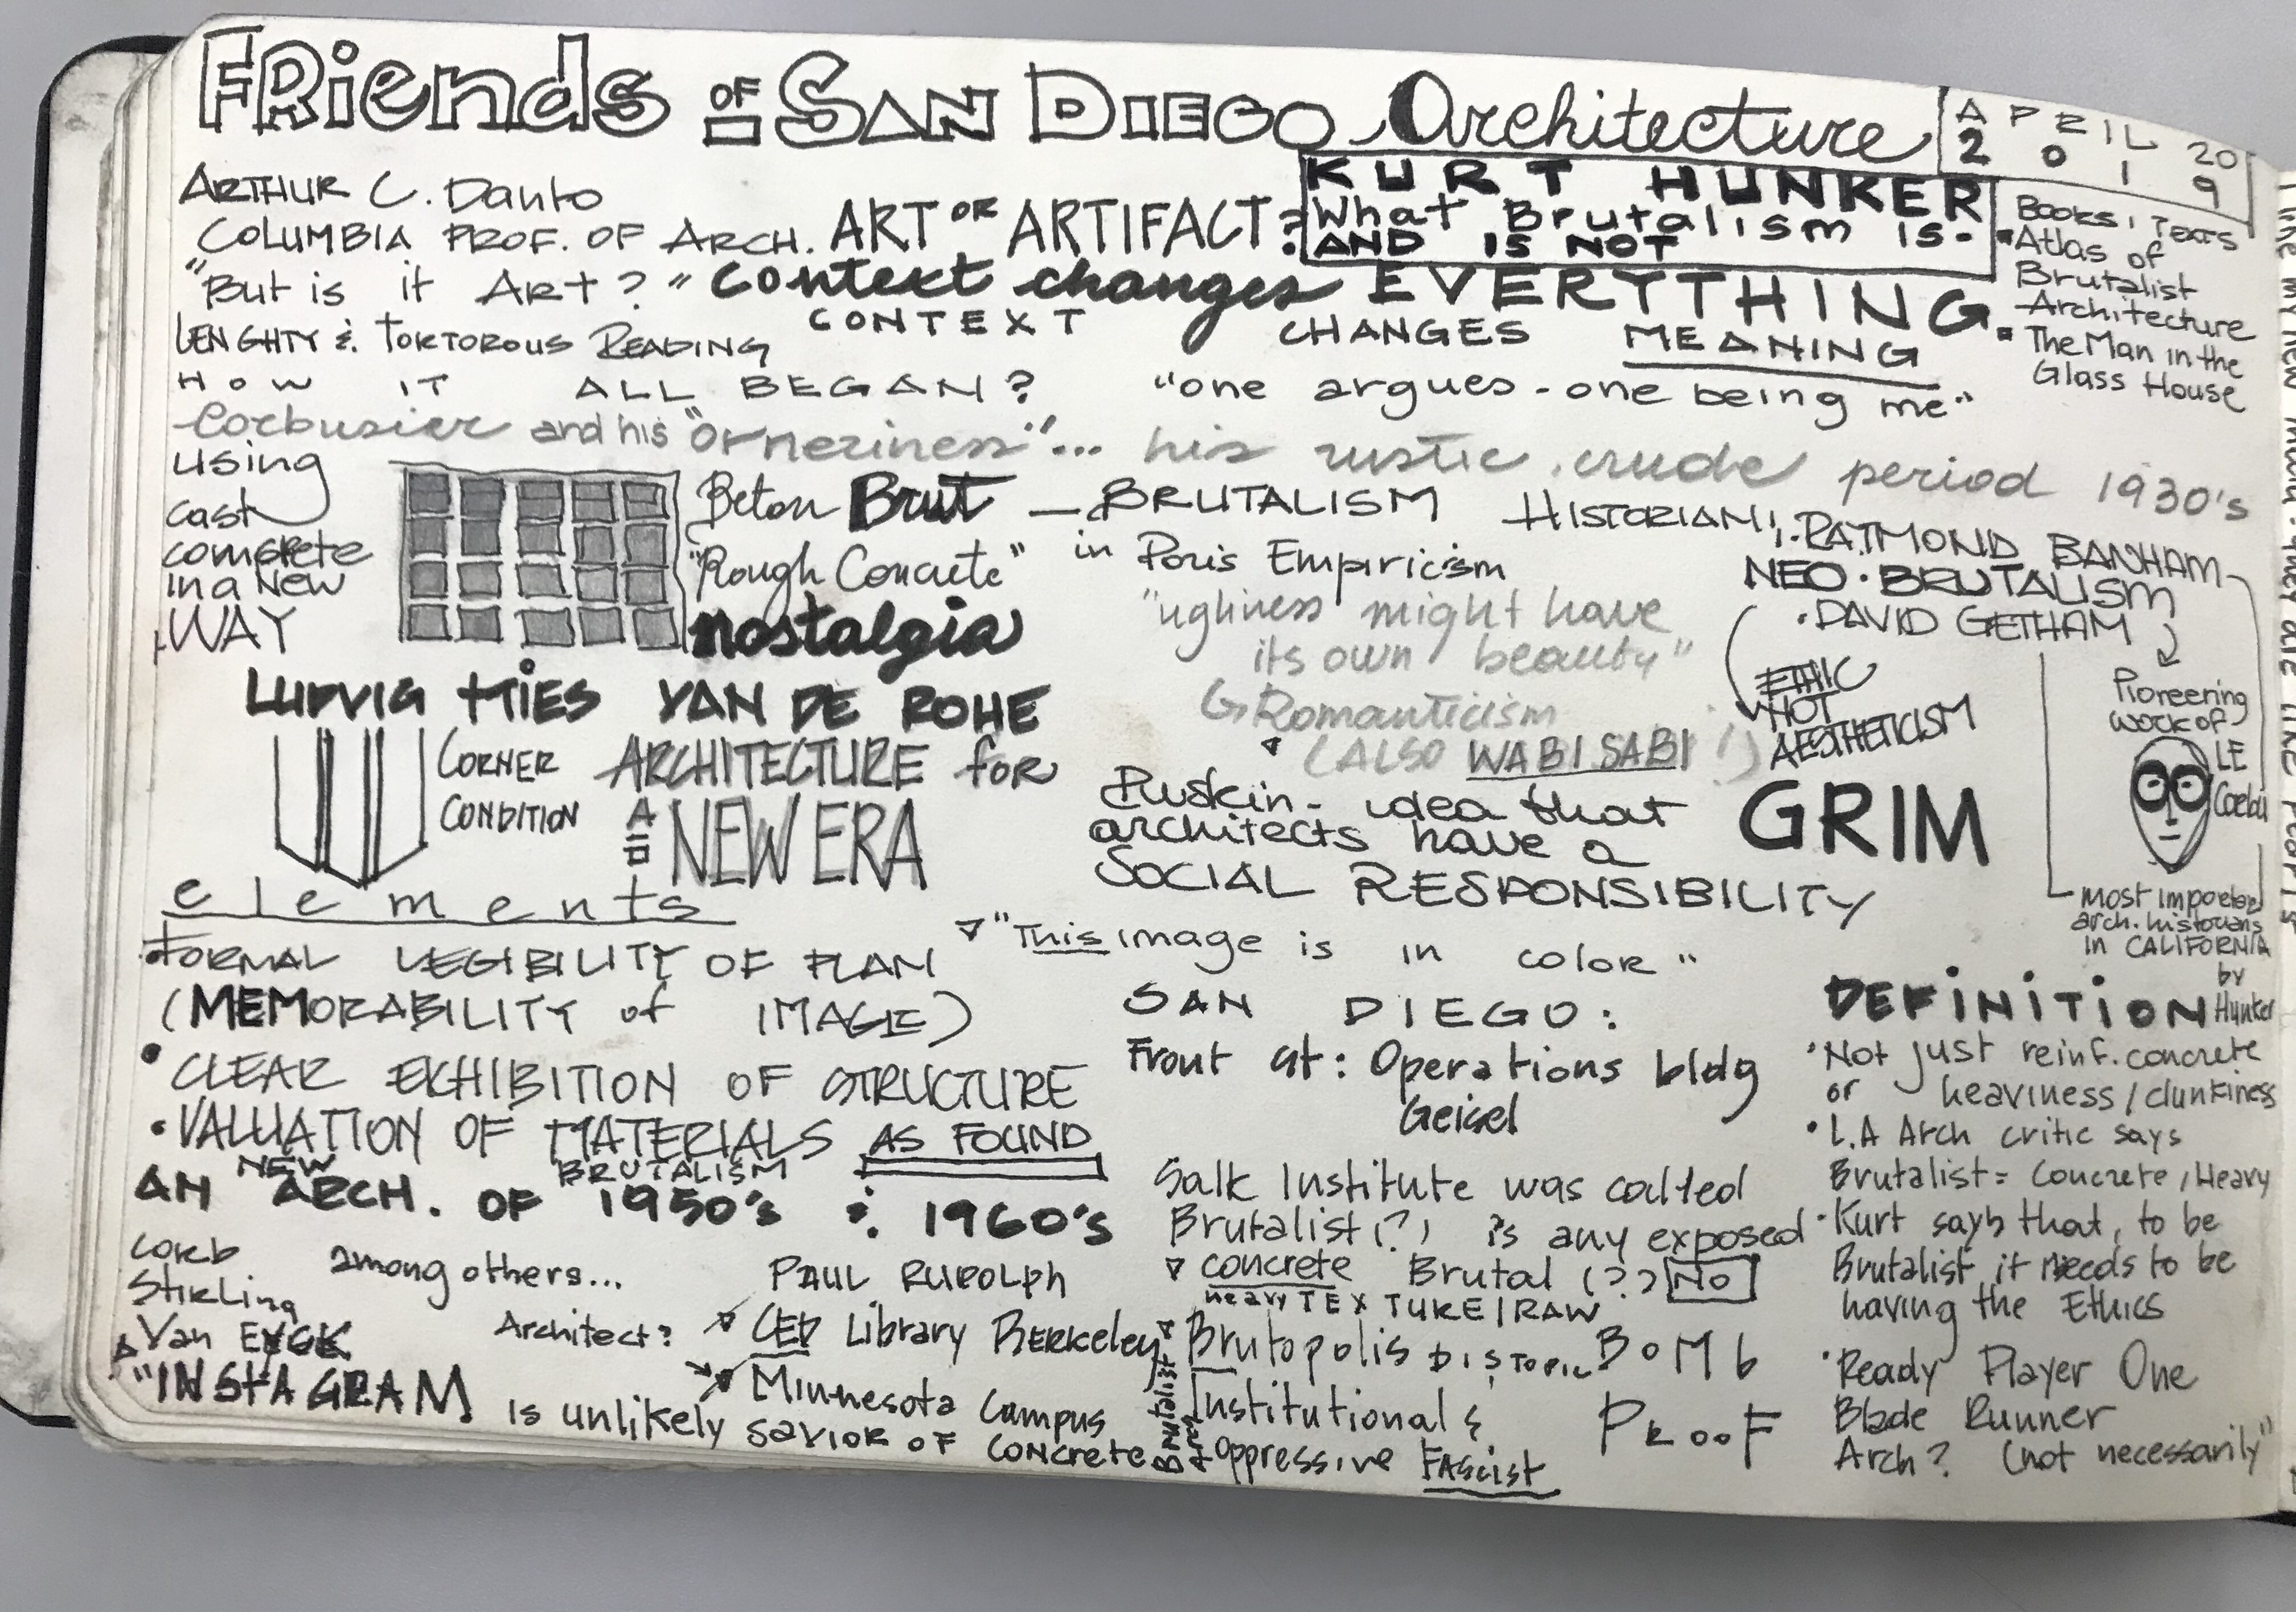 FRiends OF SAN DIEGO Architecture
APRIL 20
2019
KURT HUNKER
What Brutalism is.
AND IS NOT
ARTHUR C. Danto
COLUMBIA PROF. OF ARCH.
"But is it Art?"
LENGHTY & TORTOROUS READING
ART OR ARTIFACT?
Context changes EVERYTHING.
CONTEXT CHANGES MEANING
BOOKS, TEXTS
• Atlas of
Brutalist
Architecture
• The Man in the
Glass House
HOW IT ALL BEGAN?
"one argues - one being me"
Corbusier and his "orneriness"... his rustic, crude period 1930's
using
cast
concrete
in a New
WAY
Beton Brut — BRUTALISM
"Rough Concrete"
nostalgia
in Paris Empiricism
"ugliness might have
its own beauty"
Romanticism
(ALSO WABI SABI!)
HISTORIAN:
• RAYMOND BANHAM
NEO • BRUTALISM
• DAVID GETHAM
ETHIC
NOT
AESTHETICISM
GRIM
Pioneering
work of
LE
most important
arch. historians
in CALIFORNIA
by
Hunker
LUDVIG MIES VAN DE ROHE
CORNER
CONDITION
ARCHITECTURE for
A
NEW ERA
Ruskin - idea that
architects have a
SOCIAL RESPONSIBILITY
elements
• FORMAL LEGIBILITY OF PLAN
(MEMORABILITY of IMAGE)
• CLEAR EXHIBITION OF STRUCTURE
• VALUATION OF MATERIALS AS FOUND
NEW BRUTALISM
AN ARCH. OF 1950's & 1960's
Corb
Stirling
Van EYCK
among others...
Architect?
PAUL RUDOLPH
CED Library BERKELEY
Minnesota Campus
"INSTAGRAM is unlikely savior of concrete
Brutalist
"This image is in color"
SAN DIEGO:
Front st: Operations bldg
Geisel
Salk Institute was called
Brutalist(?) is any exposed
concrete Brutal (??) No
heavy TEXTURE/RAW
Brutopolis DISTOPIC
Institutional &
oppressive Fascist
BOMb
PROOF
DEFINITION
• Not just reinf. concrete
or heaviness/clunkiness
• L.A Arch critic says
Brutalist = Concrete/Heavy
• Kurt says that, to be
Brutalist it needs to be
having the Ethics
• Ready Player One
Blade Runner
Arch? (not necessarily"